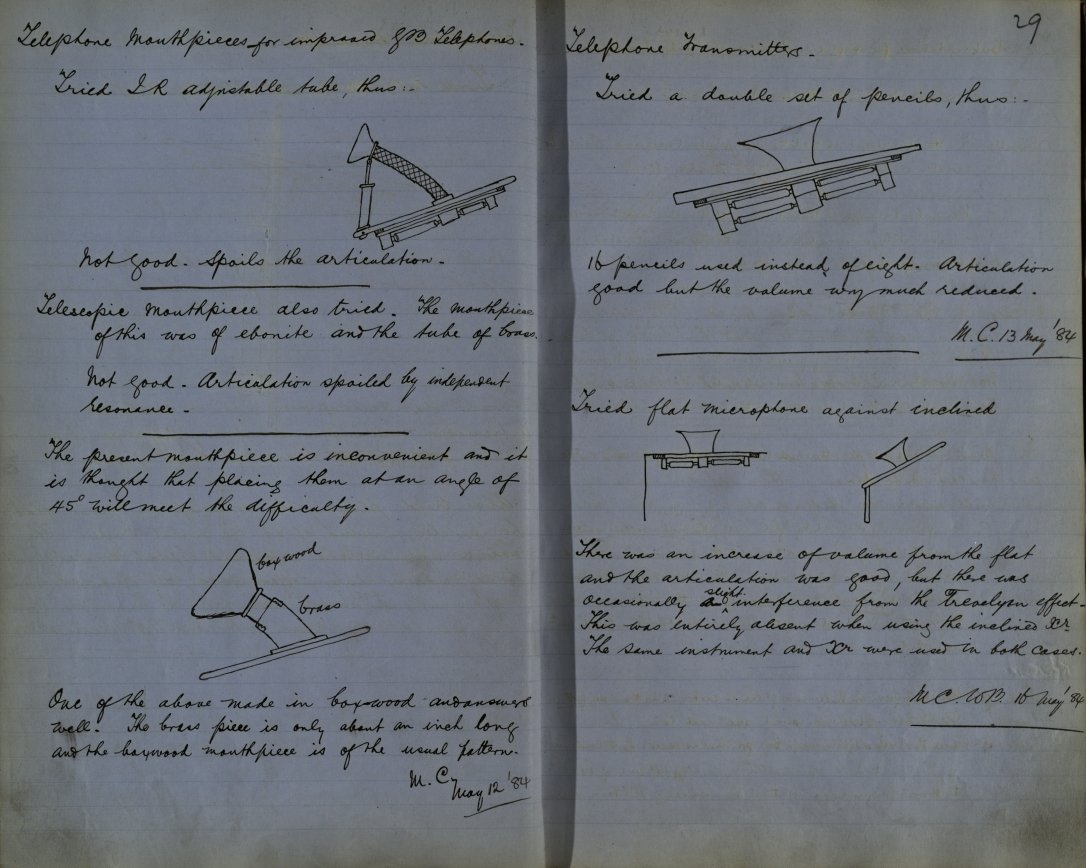 Telephone Mouthpieces for improved GB Telephones.
Tried I R adjustable tube, thus:-
Not Good. Spoils the articulation.
Telescopic Mouthpiece also tried. The mouthpiece
of this was of ebonite and the tube of brass.
Not good. Articulation spoiled by independent
resonance.
The present mouthpiece is inconvenient and it
is thought that placing them at an angle of
45° will meet the difficulty.
boxwood
brass
One of the above made in boxwood and answers
well. The brass piece is only about an inch long
and the boxwood mouthpiece is of the usual pattern.
M. C. May 12 '84
29
Telephone Transmitters.
Tried a double set of pencils, thus:-
16 pencils used instead of eight. Articulation
good but the volume very much reduced.
M. C. 13 May '84
Tried flat microphone against inclined
There was an increase of volume from the flat
and the articulation was good, but there was
occasionally slight interference from the Trevelyan effect.
This was entirely absent when using the inclined Xr.
The same instrument and Xr were used in both cases.
M.C. W.B. 16 May '84